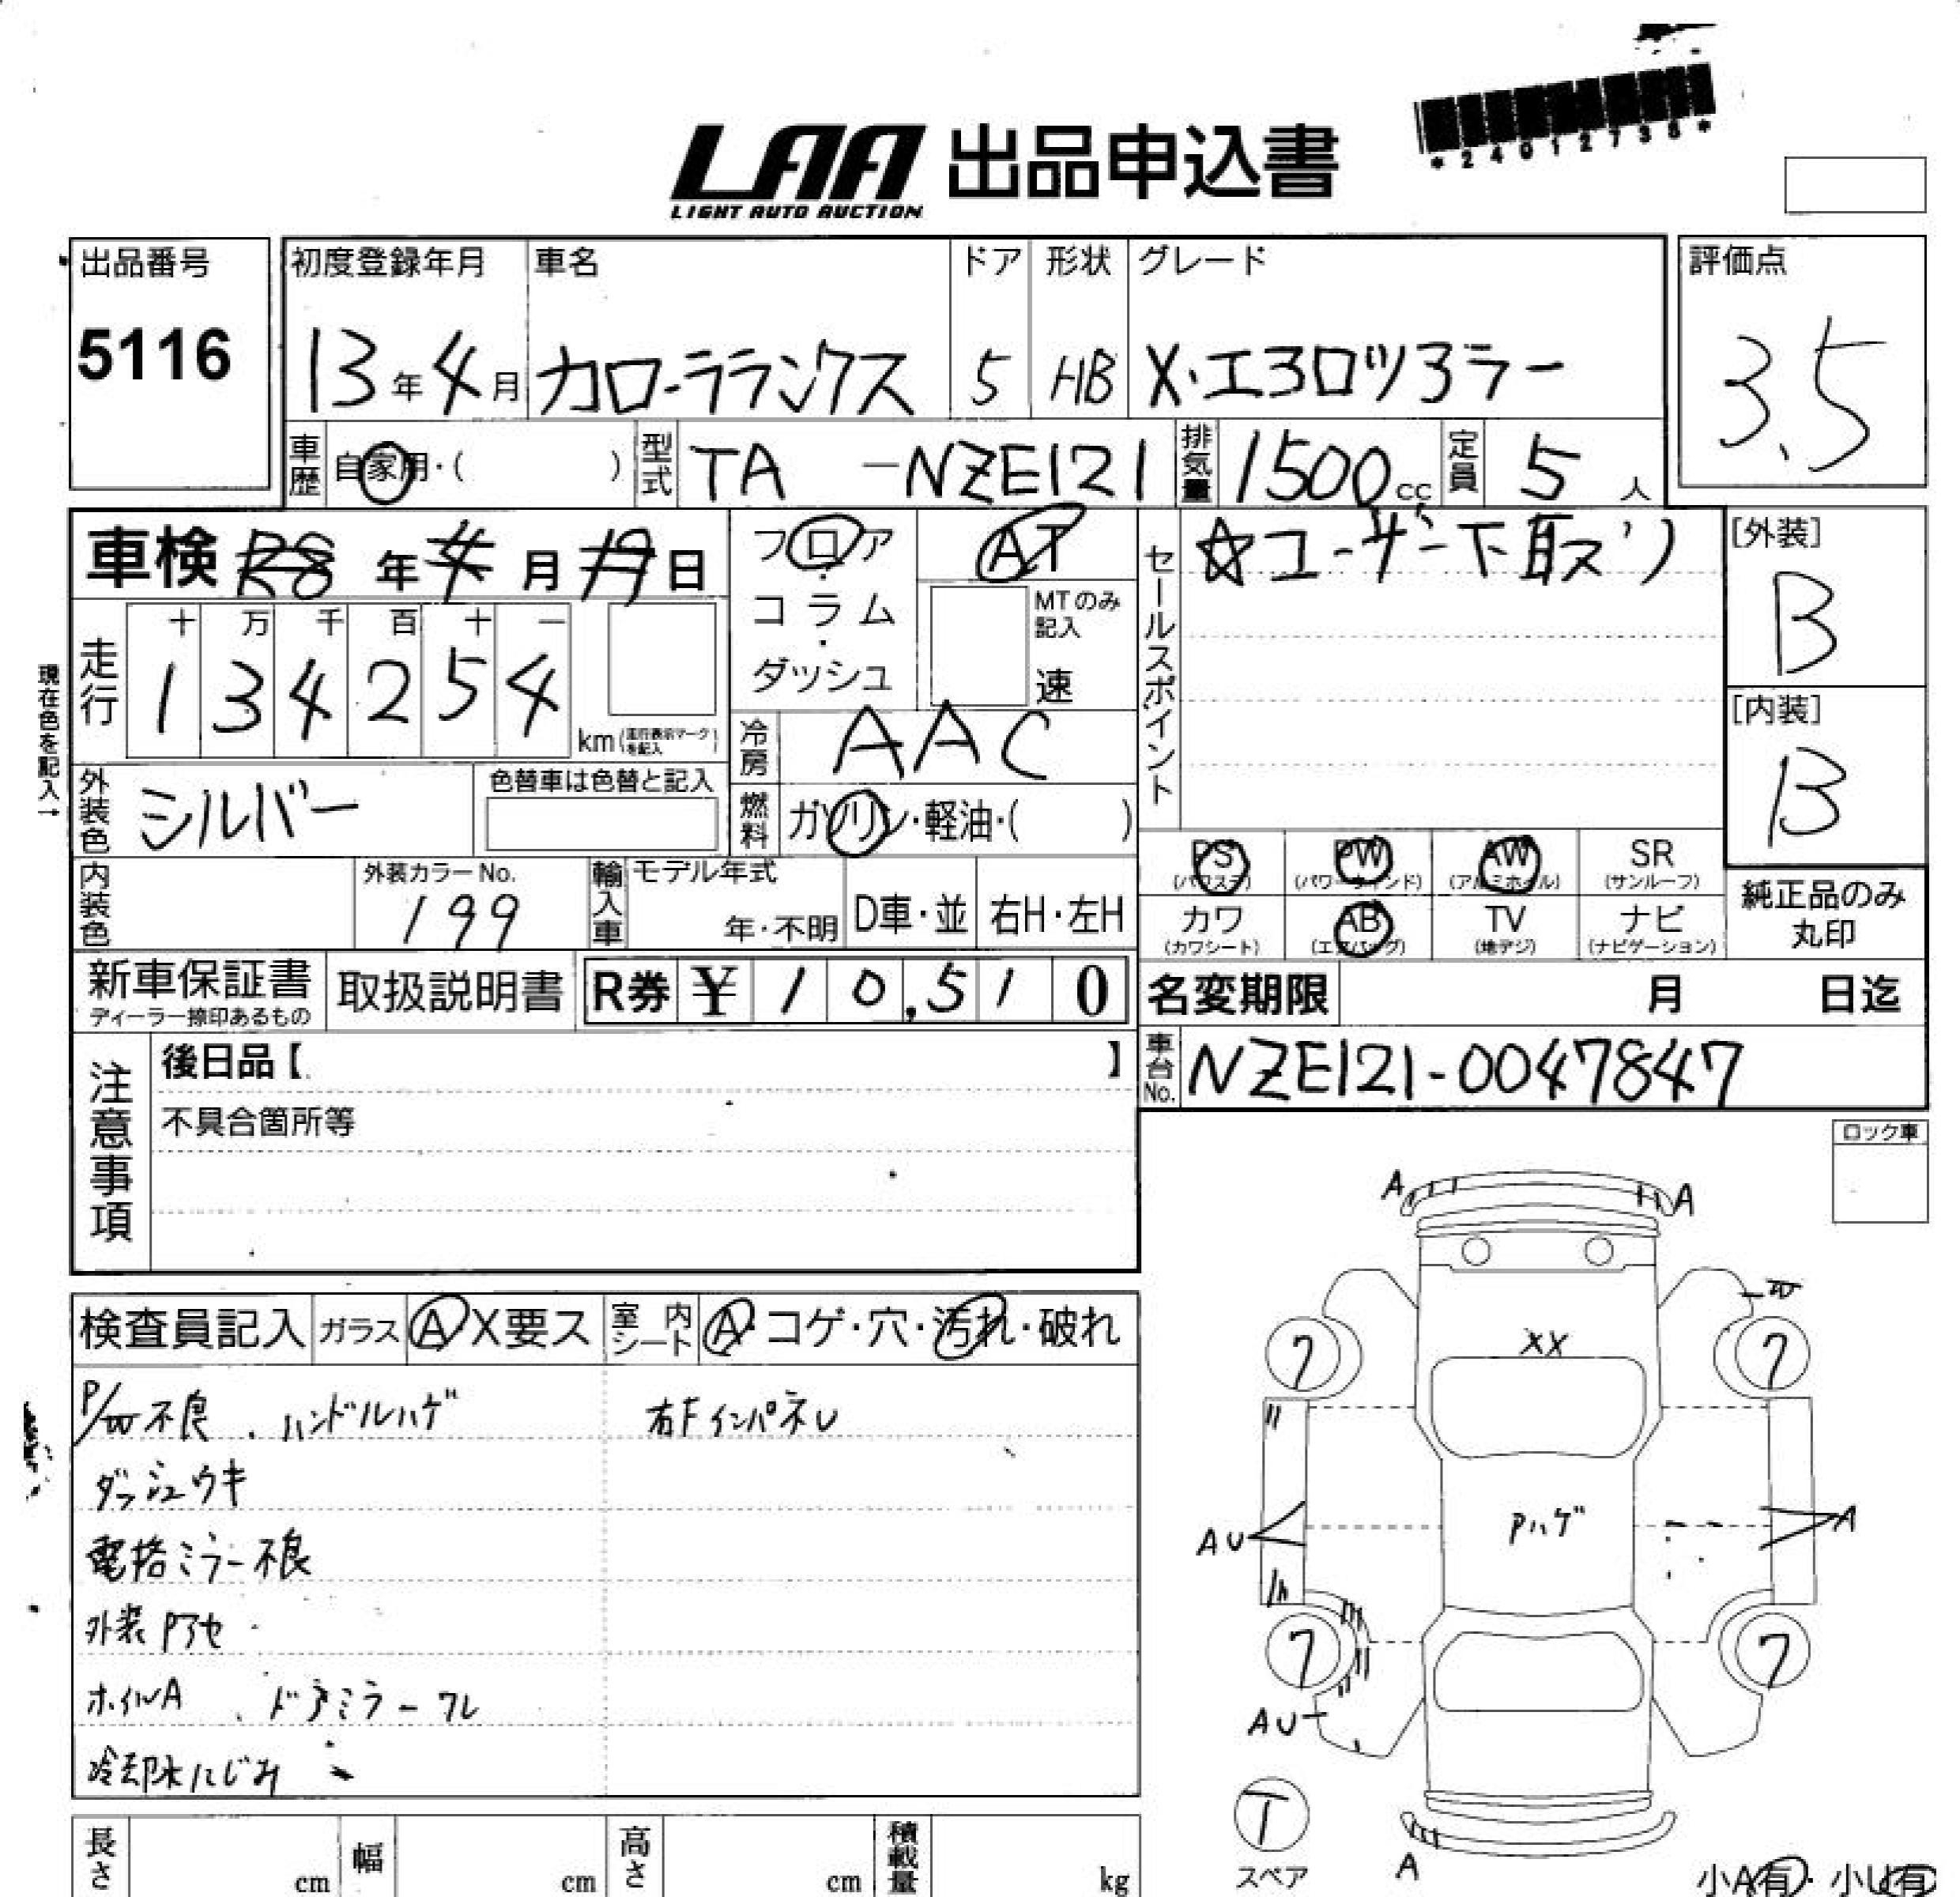 *24012738*
LAA 出品申込書
LIGHT AUTO AUCTION
出品番号
5116
初度登録年月
13年4月
車名
カローラランクス
ドア
5
形状
HB
グレード
X・エヨロツヨラー
評価点
3.5
車歴
自家用・( )
型式
TA -NZE121
排気量
1500cc
定員
5人
車検 R8年4月19日
フロア・コラム・ダッシュ
AT
MTのみ記入
速
セールスポイント
☆ユーザー下取り
[外装]
B
[内装]
B
現在色を記入→
走行
十 万 千 百 十 一
1 3 4 2 5 4
km(走行表示マークを記入)
冷房
AAC
外装色
シルバー
色替車は色替と記入
燃料
ガソリン・軽油・( )
内装色
外装カラーNo.
199
輸入車
モデル年式
年・不明
D車・並
右H・左H
PS (パワステ)
PW (パワーウィンド)
AW (アルミホイル)
SR (サンルーフ)
カワ (カワシート)
AB (エアバッグ)
TV (地デジ)
ナビ (ナビゲーション)
純正品のみ
丸印
新車保証書
ディーラー捺印あるもの
取扱説明書
R券 ¥ 10,510
名変期限 月 日迄
車台No.
NZE121-0047847
注意事項
後日品【 】
不具合箇所等
ロック車
検査員記入
ガラス
A X要ス
室内シート
A・コゲ・穴・汚れ・破れ
P/W不良 . ハンドルハゲ
右Fインパネレ
ダッシュウキ
電格ミラー不良
外装Pアセ
ホイルA 、ドアミラーワレ
冷却水にじみ
A A
W
XX
7 7
AU
Pハゲ
A
7 7
AU
T
スペア
A
小A有・小U有
長さ cm
幅 cm
高さ cm
積載量 kg